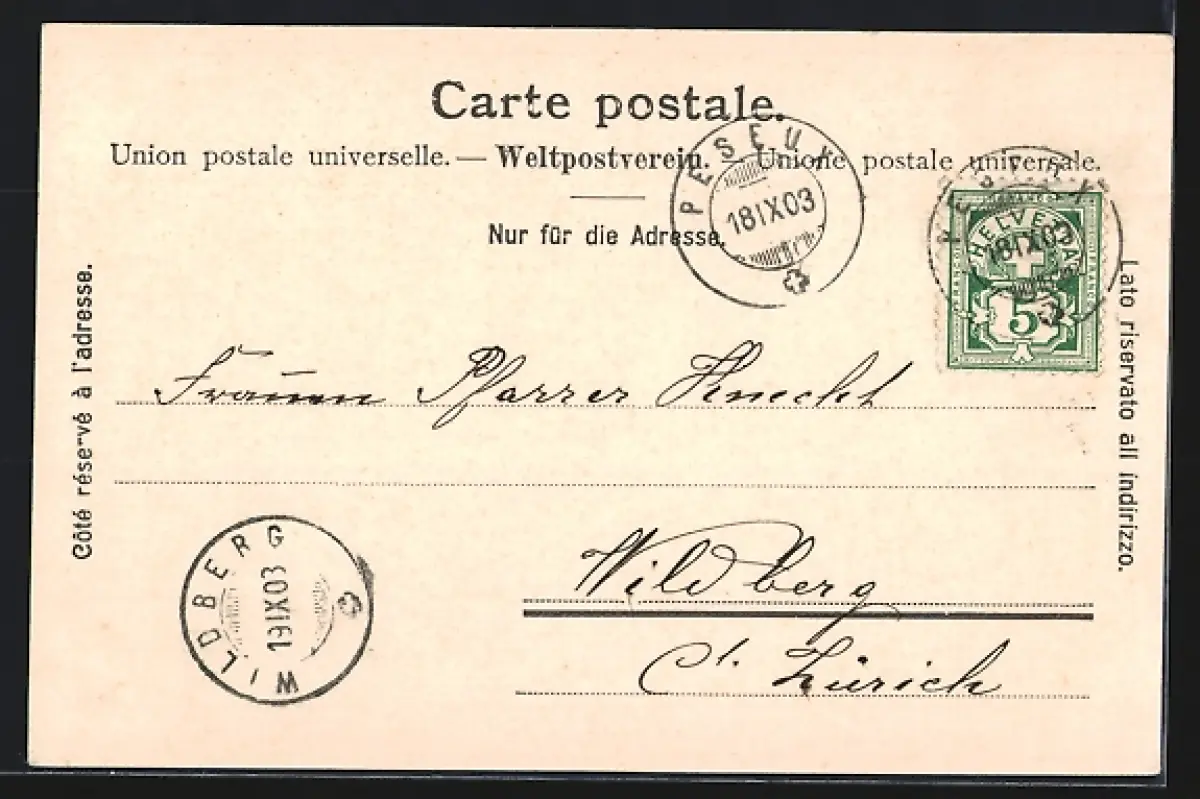 Carte postale.
Union postale universelle. — Weltpostverein. — Unione postale universale.
Nur für die Adresse.
Côté réservé à l'adresse.
Lato riservato all indirizzo.
PESEUX
18 IX 03
PESEUX
18 IX 03
HELVETIA
FRANCO
5
Frauen Pfarrer Knecht
Wildberg
Ct. Zürich
WILDBERG
19 IX 03